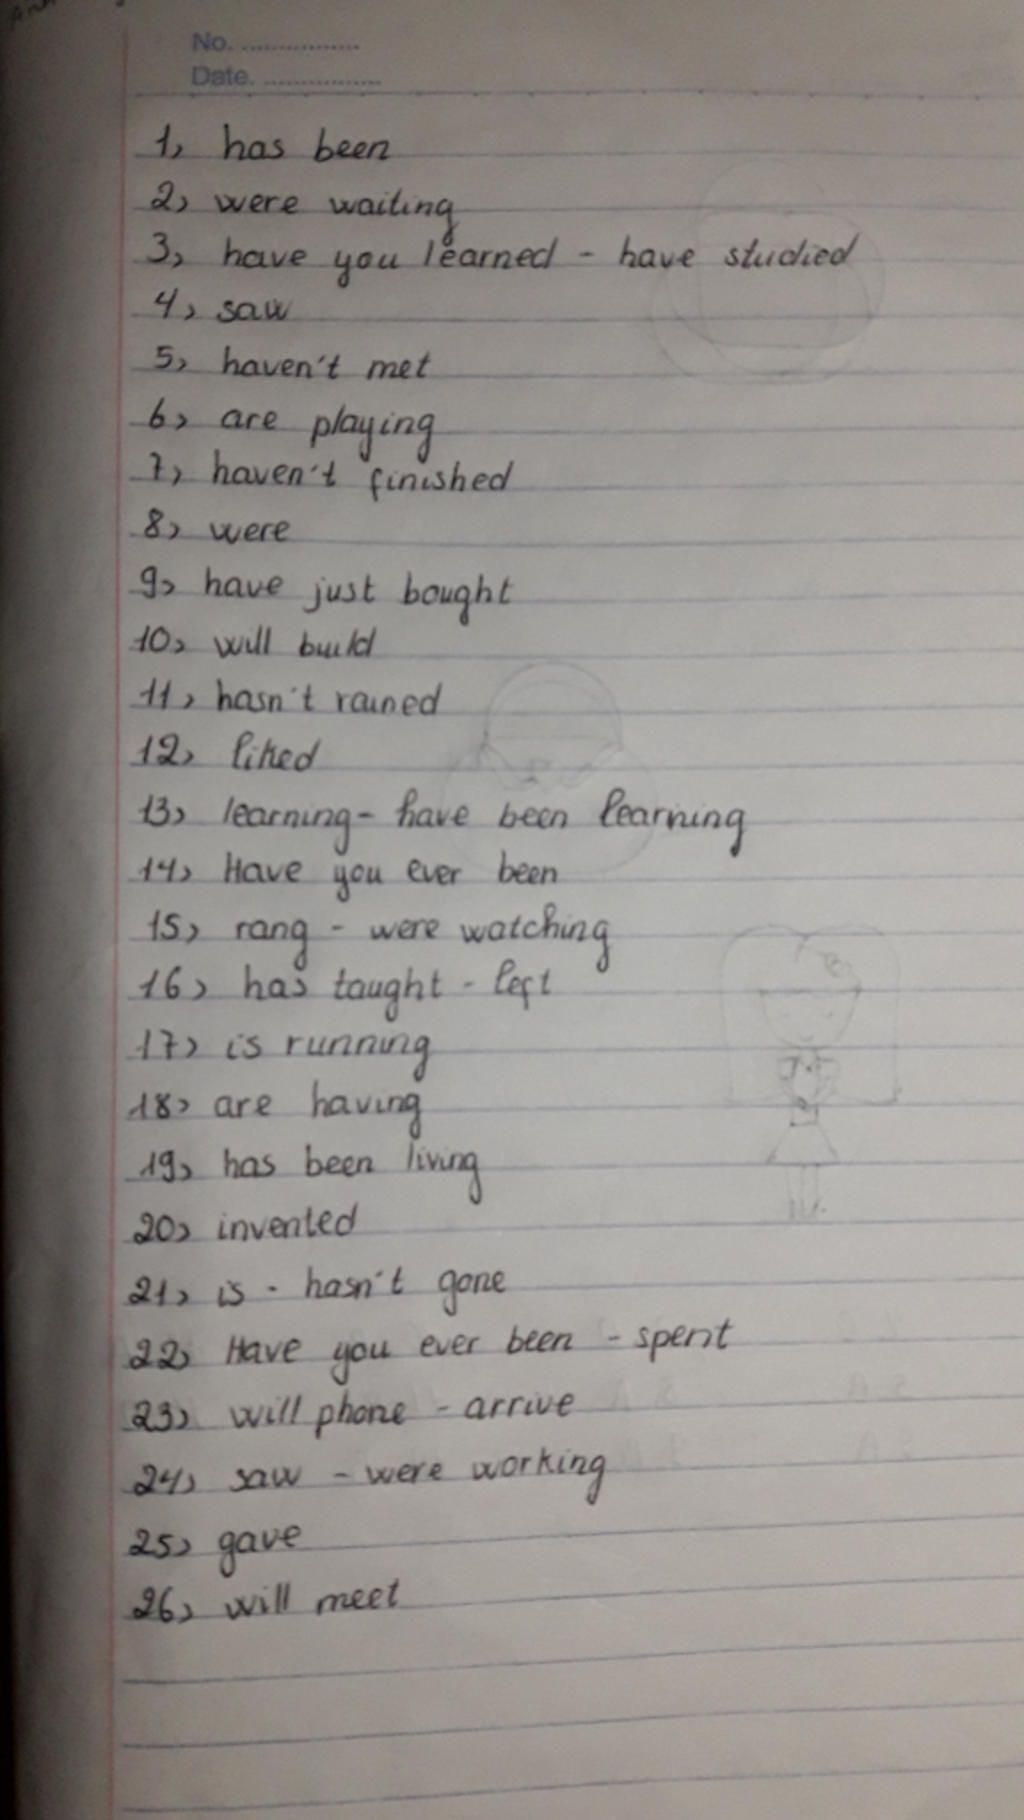 No. ..................
Date. ..................
1, has been
2, were waiting
3, have you learned - have studied
4, saw
5, haven't met
6, are playing
7, haven't finished
8, were
9, have just bought
10, will build
11, hasn't rained
12, liked
13, learning - have been learning
14, Have you ever been
15, rang - were watching
16, has taught - left
17, is running
18, are having
19, has been living
20, invented
21, is - hasn't gone
22, Have you ever been - spent
23, will phone - arrive
24, saw - were working
25, gave
26, will meet